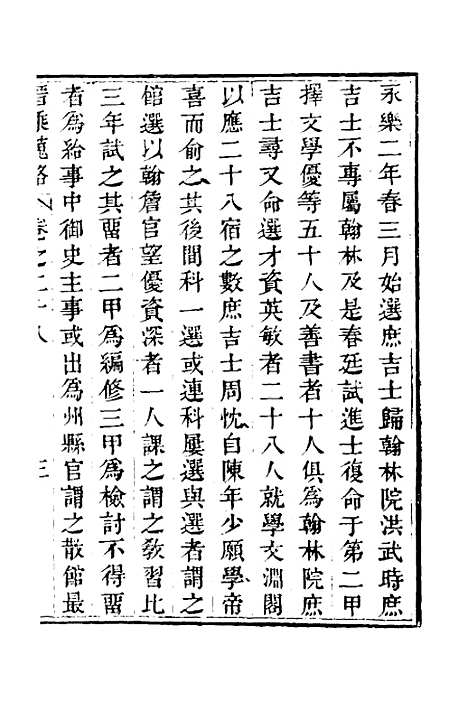 永樂二年春三月始選庶吉士歸翰林院洪武時庶
吉士不專屬翰林及是春廷試進士復命于第二甲
擇文學優等五十人及善書者十人俱爲翰林院庶
吉士尋又命選才資英敏者二十八人就學文淵閣
以應二十八宿之數庶吉士周忱自陳年少願學帝
喜而俞之其後間科一選或連科屢選與選者謂之
館選以翰詹官望優資深者一人課之謂之敎習比
三年試之其畱者二甲爲編修三甲爲檢討不得畱
者爲給事中御史主事或出爲州縣官謂之散館最
晋乘蒐略 卷之二十八 三